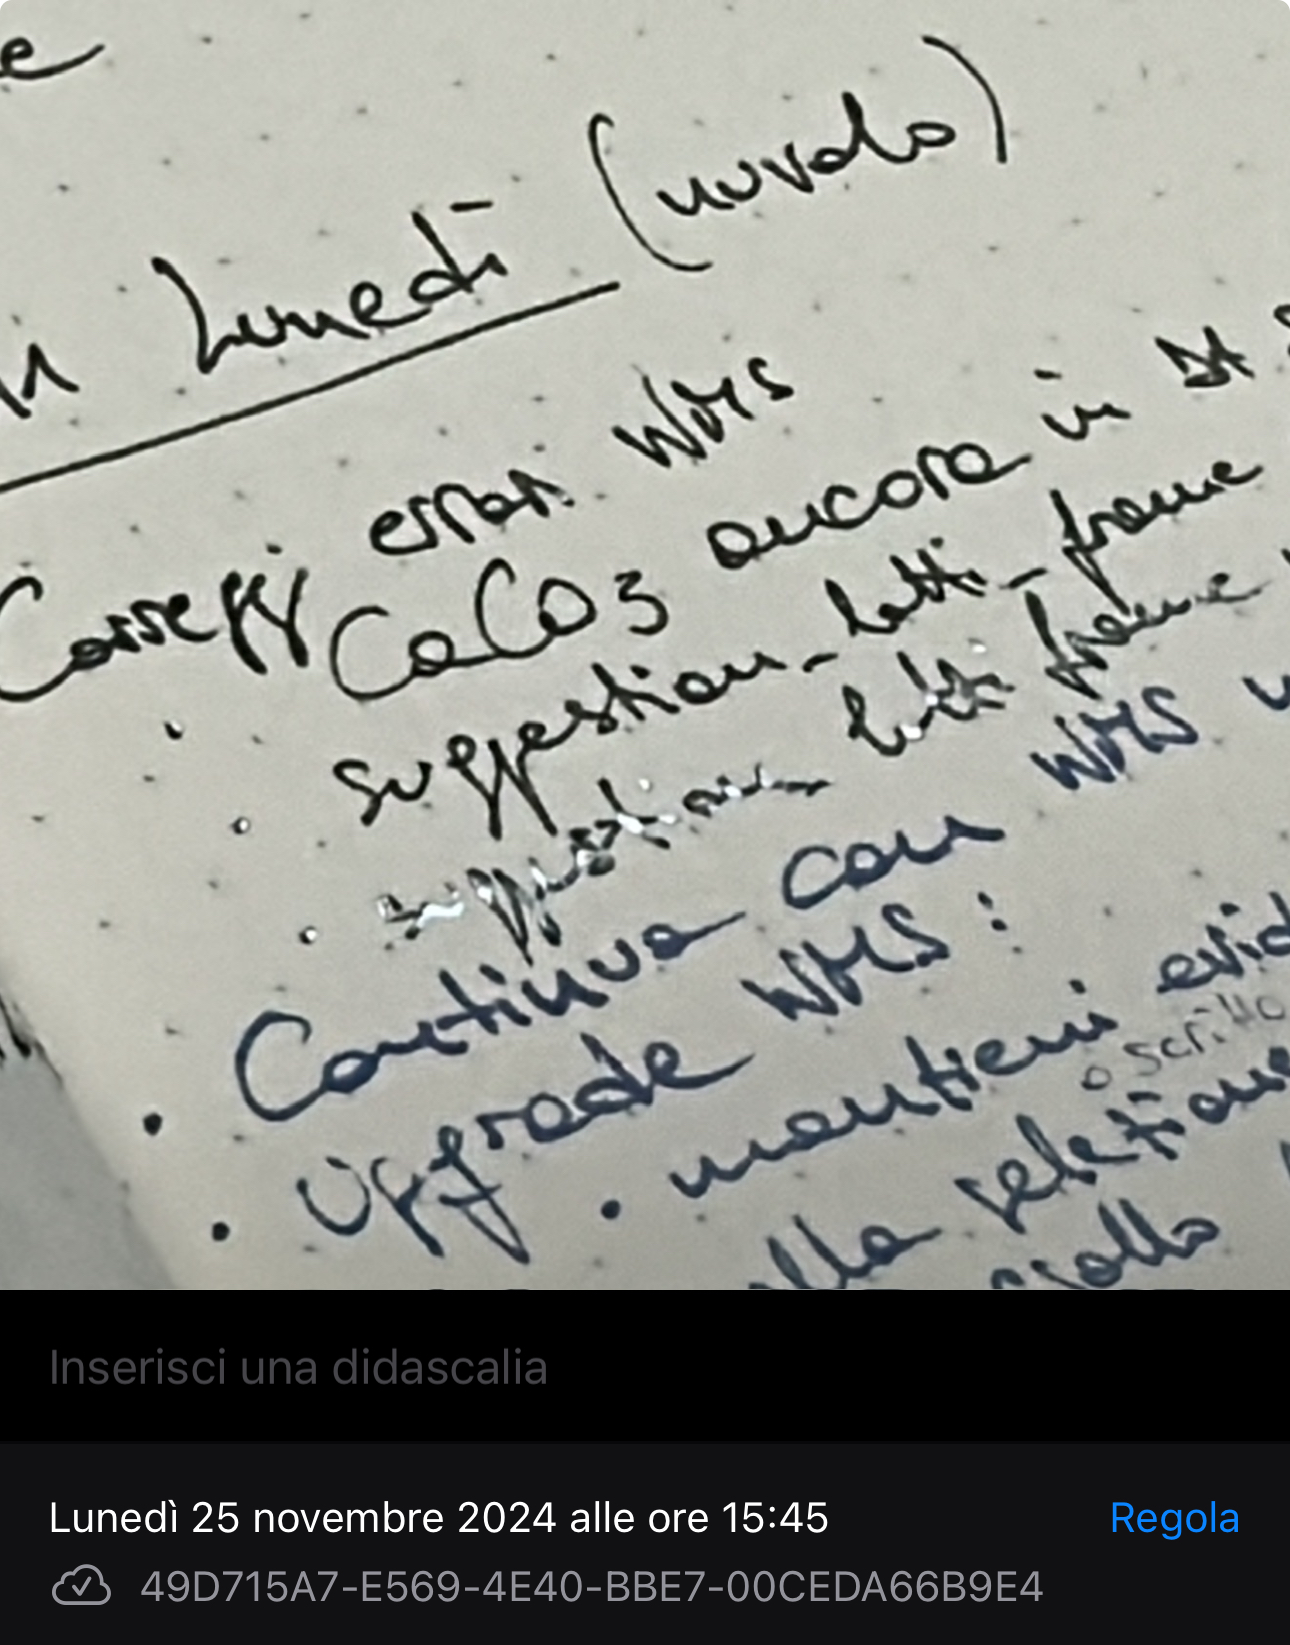 Lunedì (nuvolo)
Correggi errori WMS
CaCO3 ancora in
suggestion_tutti_frame
suggestion tutti frame
Continua con WMS
Upgrade WMS:
mantieni
o scritto
alla relazione
Inserisci una didascalia
Lunedì 25 novembre 2024 alle ore 15:45
Regola
49D715A7-E569-4E40-BBE7-00CEDA66B9E4